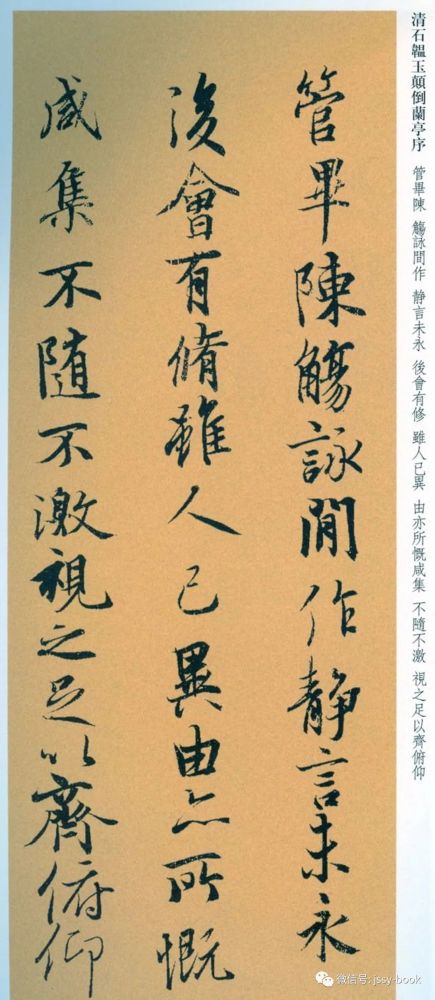 清石韞玉顛倒蘭亭序 管畢陳 觴詠間作 静言未永 後會有修 雖人已異 由亦所慨咸集 不隨不激 視之足以齊俯仰
管畢陳觴詠間作静言未永
後會有脩雖人已異由亦所慨
咸集不随不激視之足以齊俯仰
微信号: jssy-book